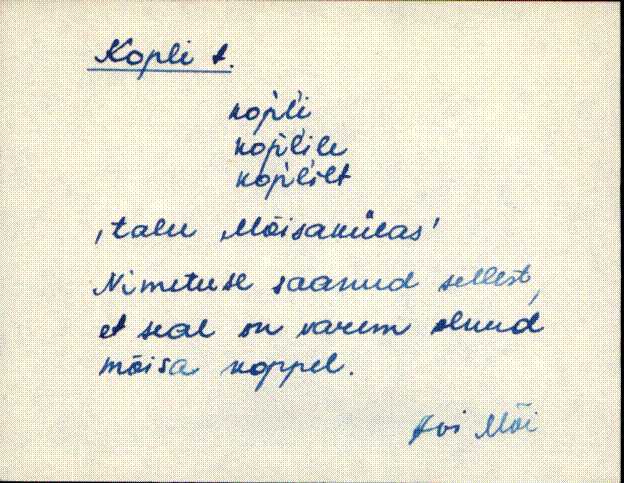 Kopli t.
kop̀li
kop̀lile
kop̀lilt
‚talu Mõisakülas'
Nimetuse saanud sellest,
et seal on varem olnud
mõisa koppel.
Mõi